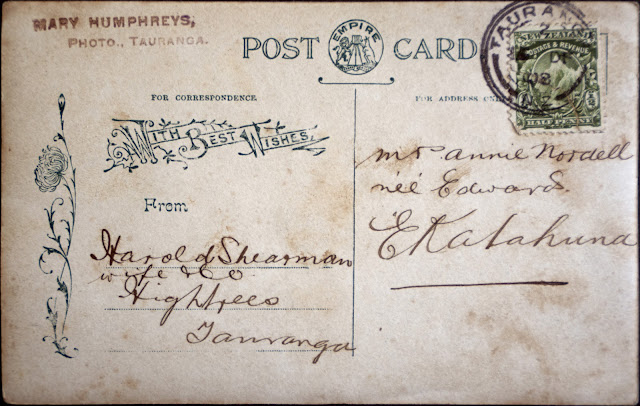 MARY HUMPHREYS,
PHOTO., TAURANGA.
POST CARD
EMPIRE
FOR CORRESPONDENCE.
FOR ADDRESS ONLY
WITH BEST WISHES,
From
Harold Shearman
wife & Co.
Hightrees
Tauranga
TAURAN
N.Z.
NEW ZEALAND
POSTAGE & REVENUE
HALF PENNY
mrs annie Nordell
née Edwards.
EKatahuna